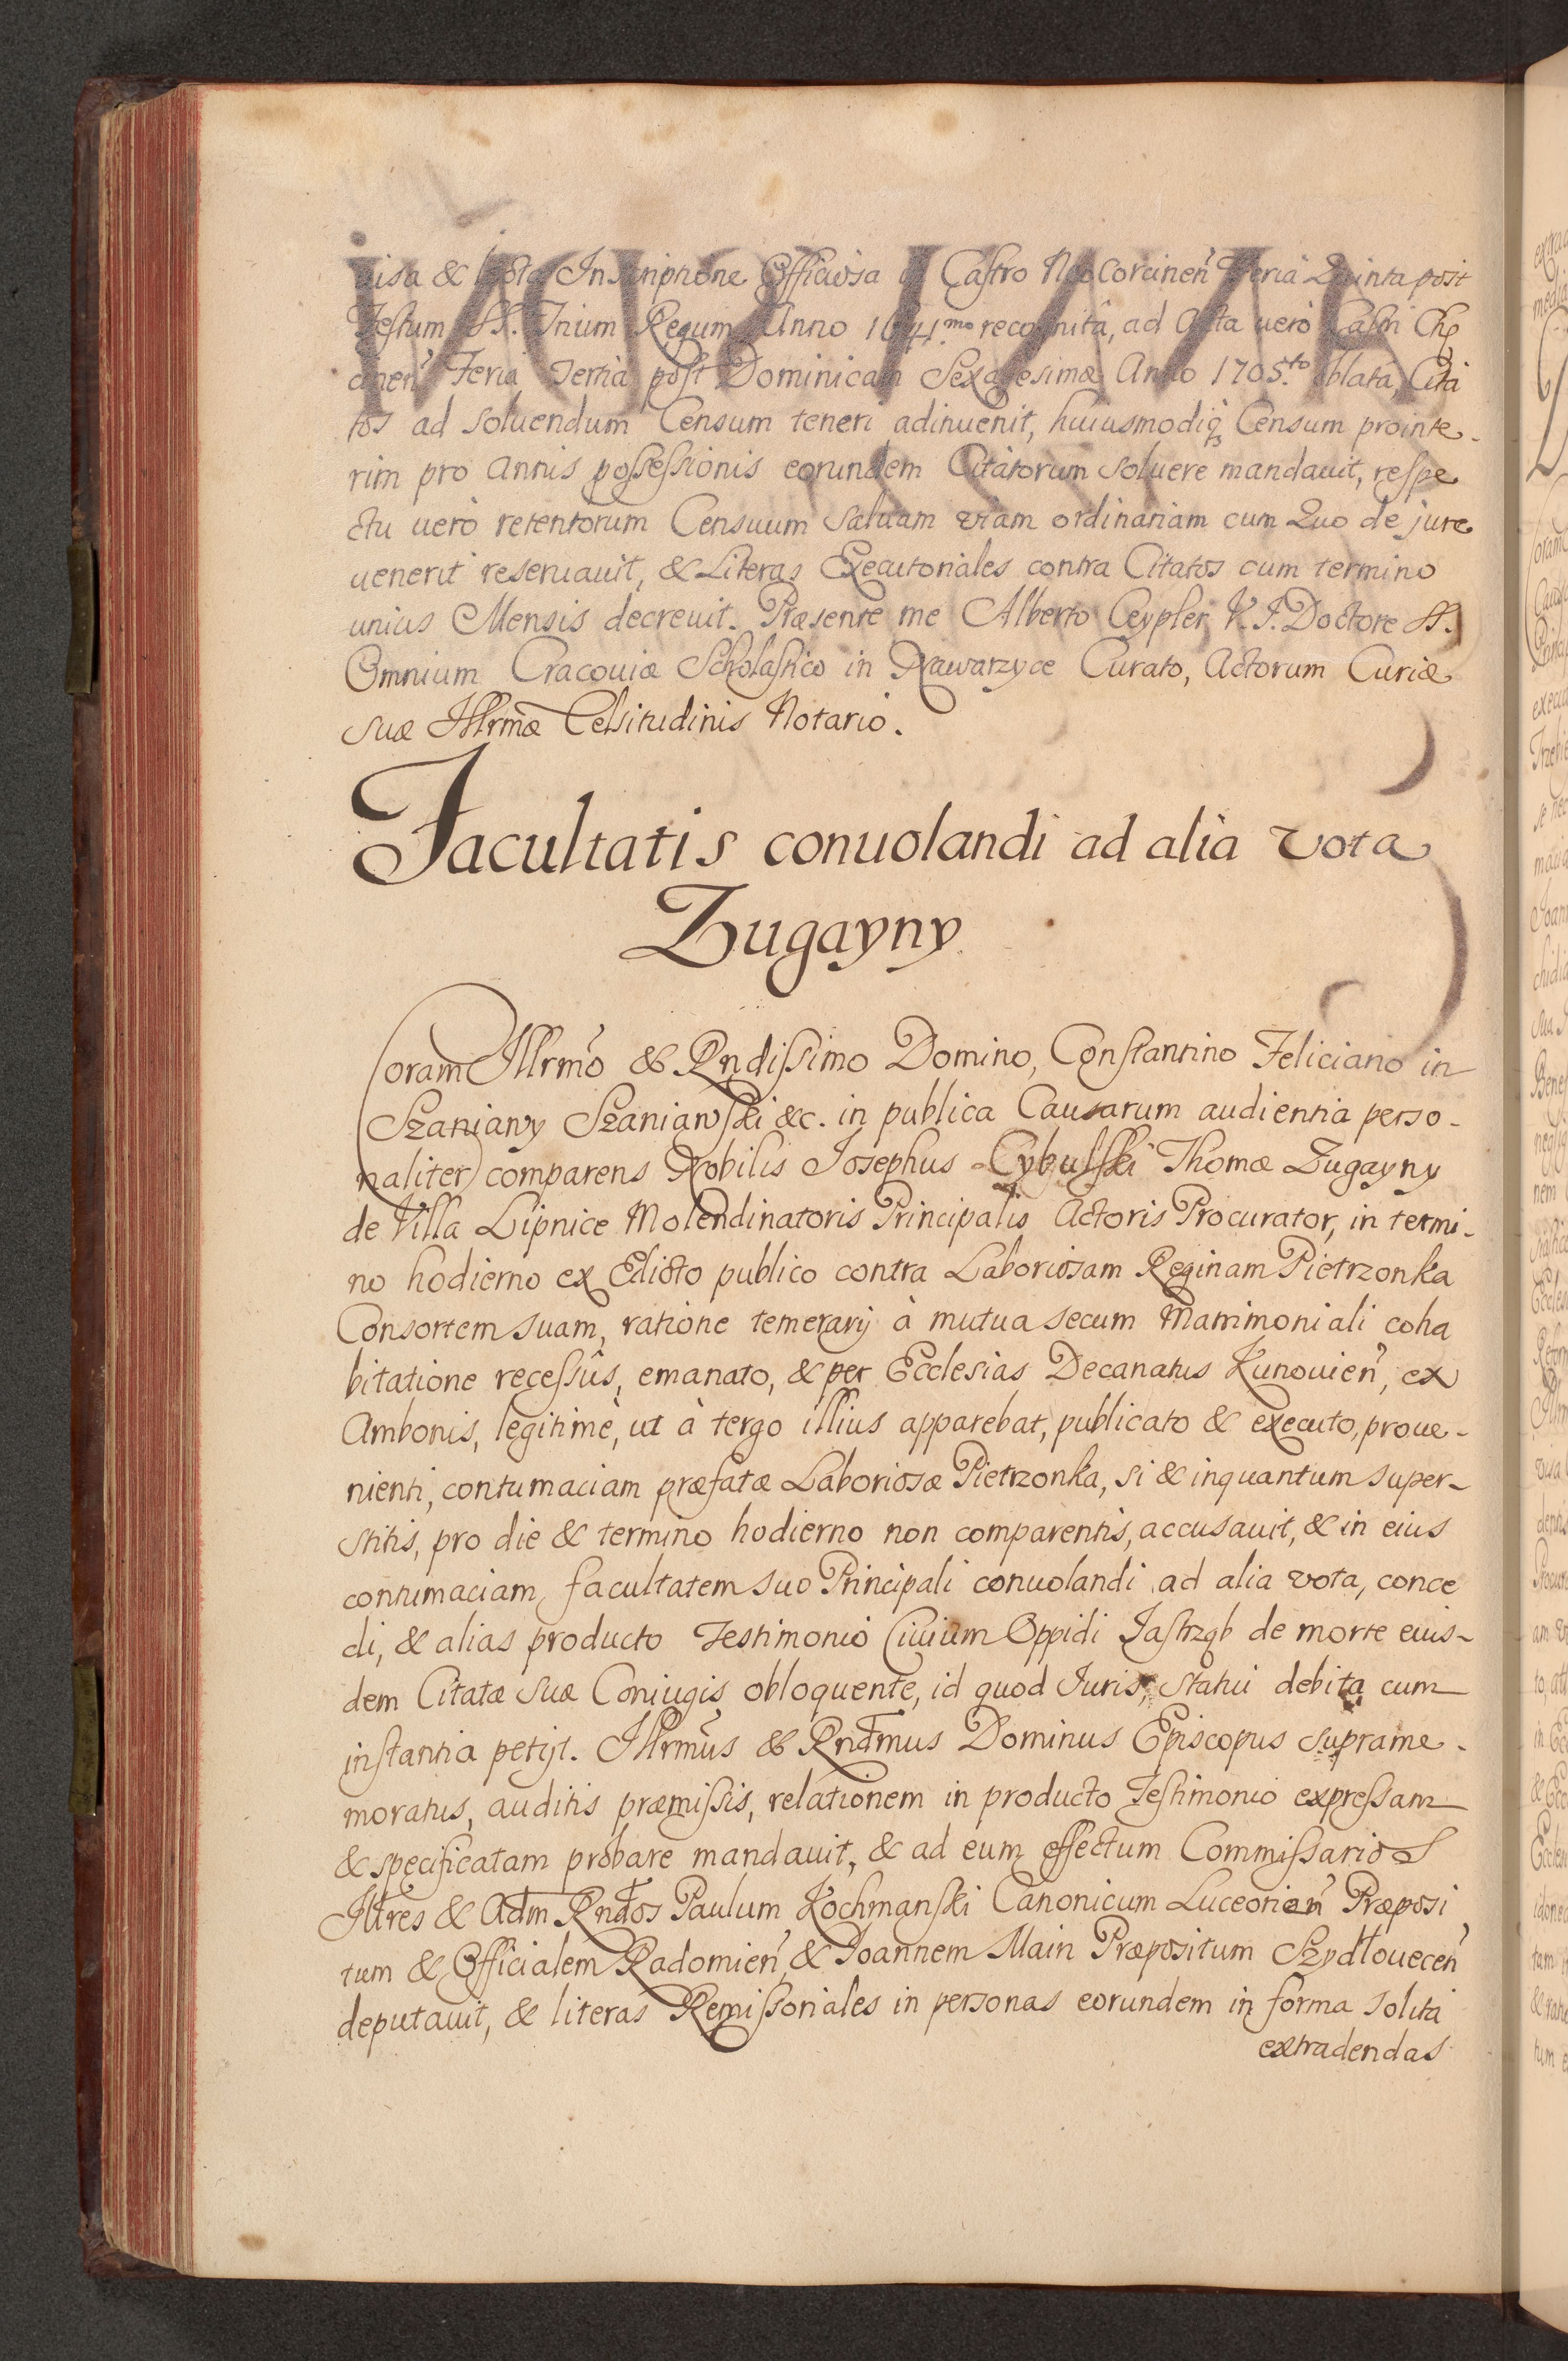 uisa & lecta Inscriptione Officiosa in Castro Neo Corcinen̄ Feria Quinta post
Festum SS. Trium Regum Anno 16 41.mo recognitâ, ad Acta uero Castri Chę
cinen̄ Feria Tertia post Dominicam Sexagesimæ Anno 1705.to oblata, Cita
tos ad soluendum Censum teneri adinuenit, huiusmodiq; Censum prointe-
rim pro Annis possessionis eorundem Citatorum soluere mandauit, respe
ctu uerò retentorum Censuum saluam viam ordinariam cum Quo de jure
uenerit reseruauit, & Literas Executoriales contra Citatos cum termino
unius Mensis decreuit. Præsente me Alberto Ceypler V. J. Doctore SS.
Omnium Cracouiæ Scholastico in Wawarzyce Curato, Actorum Curiæ
suæ Illrmæ Celsitudinis Notario.
Facultatis conuolandi ad alia vota
Zugayny
Coram Illrmo & Rndissimo Domino, Constantino Feliciano in
Szaniawy Szaniawski &c. in publica Causarum audientia perso-
naliter comparens Nobilis Josephus Cybulski Thomæ Zugayny
de Villa Lipnice Molendinatoris Principalis Actoris Procurator, in termi-
no hodierno ex Edicto publico contra Laboriosam Reginam Pietrzonka
Consortem suam, ratione temerarij à mutua secum Matrimoniali coha
bitatione recessûs, emanato, & per Ecclesias Decanatus Kunouien̄, ex
Ambonis, legitimè, ut à tergo illius apparebat, publicato & executo, proue-
nienti, contumaciam præfatæ Laboriosæ Pietrzonka, si & inquantum super-
stitis, pro die & termino hodierno non comparentis, accusauit, & in eius
contumaciam, facultatem suo Principali conuolandi ad alia vota, conce
di, & alias producto Testimonio Ciuium Oppidi Jastrząb de morte eius-
dem Citatæ suæ Coniugis obloquente, id quod Juris, statui debita cum
instantia petijt. Illrmus & Rndmus Dominus Episcopus suprame-
moratus, auditis præmissis, relationem in producto Testimonio expressam
& specificatam probare mandauit, & ad eum effectum Commissarios
Illres & Adm Rndos Paulum Kochmanski Canonicum Luceorien̄ Præposi
tum & Officialem Radomien̄, & Joannem Main Præpositum Szydłouecen̄
deputauit, & literas Remissoriales in personas eorundem in forma solita
extradendas